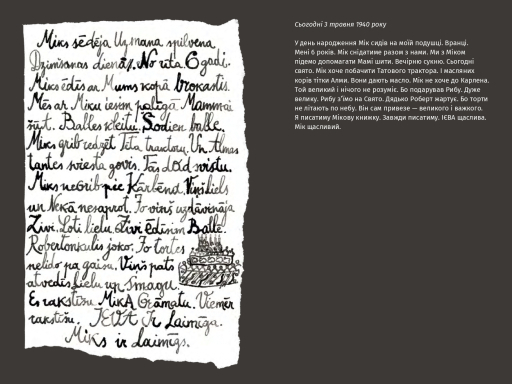 Miks sēdēja Uz mana spilvena
Dzimšanas dienā. No rīta 6 gadi.
Miks ēdīs ar Mums kopā brokastis.
Mēs ar Miku iesim palīgā Mammai
šūt. Balles kleitu. Šodien balle.
Miks grib redzēt Tēta traktoru. Un Almas
tantes sviesta govis. Tās dod sviestu.
Miks negrib pie Kārbend. Viņš liels
un Nekā nesaprot. To viņš uzdāvināja
Zivi. Ļoti lielu. Zivi ēdīsim Ballē.
Robertonkulis joko. Jo tortes
nelido pa gaisu. Viņš pats
atvedīs Lielu un smagu.
Es rakstīšu Mika Grāmatu. Vienmēr
rakstīšu. IEVA Ir Laimīga.
Miks ir Laimīgs.
Сьогодні 3 травня 1940 року
У день народження Мік сидів на моїй подушці. Вранці.
Мені 6 років. Мік снідатиме разом з нами. Ми з Міком
підемо допомагати Мамі шити. Вечірню сукню. Сьогодні
свято. Мік хоче побачити Татового трактора. І масляних
корів тітки Алми. Вони дають масло. Мік не хоче до Карпена.
Той великий і нічого не розуміє. Бо подарував Рибу. Дуже
велику. Рибу з’їмо на Свято. Дядько Роберт жартує. Бо торти
не літають по небу. Він сам привезе — великого і важкого.
Я писатиму Мікову книжку. Завжди писатиму. ІЄВА щаслива.
Мік щасливий.